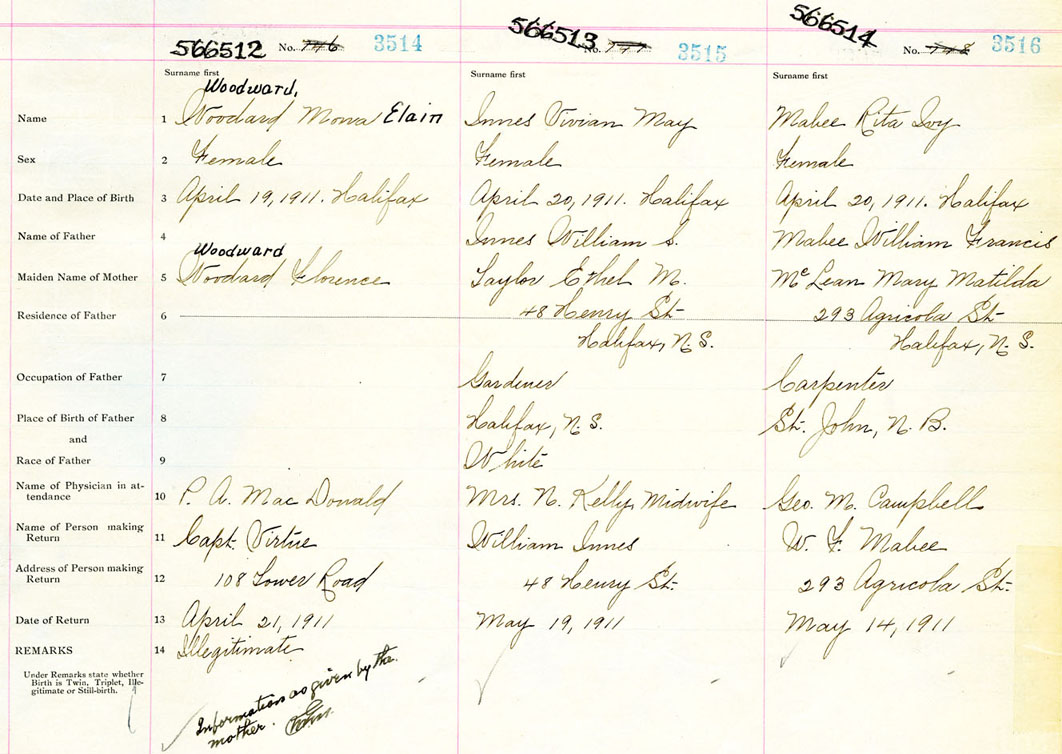 566512 No. 776 3514 566513 No. 777 3515 566514 No. 778 3516
Surname first Surname first Surname first
Woodward,
Name 1 Woodard Mona Elain Innes Vivian May Mabee Rita Ivy
Sex 2 Female Female Female
Date and Place of Birth 3 April 19, 1911. Halifax April 20, 1911. Halifax April 20, 1911. Halifax
Name of Father 4 Innes William S. Mabee William Francis
Woodward
Maiden Name of Mother 5 Woodard Florence Taylor Ethel M. McLean Mary Matilda
Residence of Father 6 48 Henry St. 293 Agricola St.
Halifax, N.S. Halifax, N.S.
Occupation of Father 7 Gardiner Carpenter
Place of Birth of Father 8 Halifax, N.S. St. John, N.B.
and
Race of Father 9 White
Name of Physician in at-
tendance 10 P. A. MacDonald Mrs. N. Kelly, Midwife Geo. M. Campbell
Name of Person making
Return 11 Capt. Virtue William Innes W. F. Mabee
Address of Person making
Return 12 108 Lower Road 48 Henry St. 293 Agricola St.
Date of Return 13 April 21, 1911 May 19, 1911 May 14, 1911
REMARKS 14 Illegitimate
Under Remarks state whether
Birth is Twin, Triplet, Ille-
gitimate or Still-birth.
Information as given by the
mother.